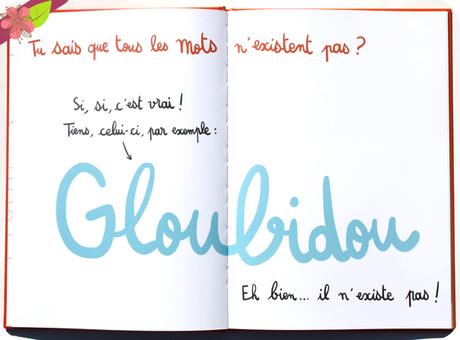 Tu sais que tous les mots n'existent pas ?
Si, si, c'est vrai !
Tiens, celui-ci, par exemple :
Gloubidou
Eh bien... il n'existe pas !